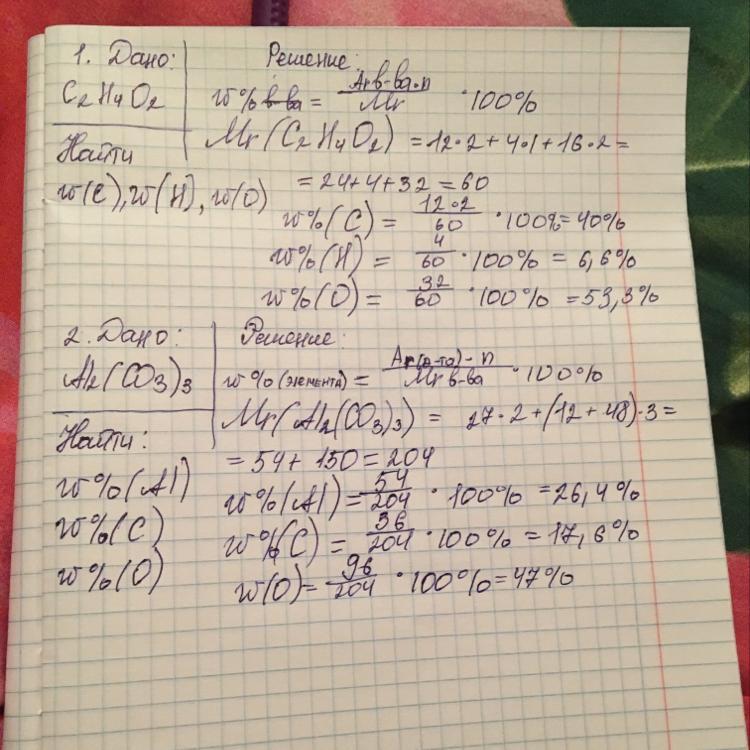 1. Дано:
C2H4O2
Найти
w(C), w(H), w(O)
Решение:
w% в-ва = Ar в-ва·n / Mr · 100%
Mr(C2H4O2) = 12·2 + 4·1 + 16·2 =
= 24+4+32 = 60
w%(C) = 12·2 / 60 · 100% = 40%
w%(H) = 4 / 60 · 100% = 6,6%
w%(O) = 32 / 60 · 100% = 53,3%
2. Дано:
Al2(CO3)3
Найти:
w%(Al)
w%(C)
w%(O)
Решение:
w%(элемента) = Ar(э-та)·n / Mr в-ва · 100%
Mr(Al2(CO3)3) = 27·2+(12+48)·3=
= 54+ 150 = 204
w%(Al) = 54 / 204 · 100% = 26,4%
w%(C) = 36 / 204 · 100% = 17,6%
w(O) = 96 / 204 · 100% = 47%